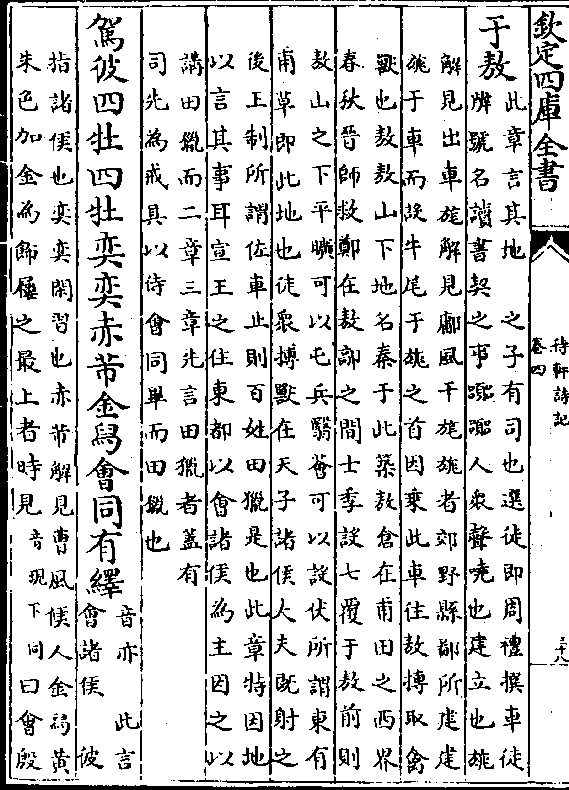 欽定四庫全書
待軒詩記
卷四
三十八
于敖
此章言其地　之子有司也選徒即周禮撰車徒
牌號名讀書契之事囂囂人衆聲嘵也建立也旐
解見出車旄解見鄘風干旄旐者郊野縣鄙所建建
旐于車而設牛尾于旐之首因乘此車往敖搏取禽
獸也敖敖山下地名秦于此築敖倉在甫田之西界
春秋晉師救鄭在敖鄗之間士季設七覆于敖前則
敖山之下平曠可以屯兵翳薈可以設伏所謂東有
甫草即此地也徒衆搏獸在天子諸侯大夫既射之
後王制所謂佐車止則百姓田獵是也此章特因地
以言其事耳宣王之住東都以會諸侯為主因之以
講田獵而二章三章先言田獵者蓋有
司先為戒具以待會同畢而田獵也
駕彼四牡四牡奕奕赤芾金舄會同有繹
音亦　此言
會諸侯　彼
指諸侯也奕奕閑習也赤芾解見曹風侯人金舄黃
朱色加金為飾屨之最上者時見音現下同曰會殷